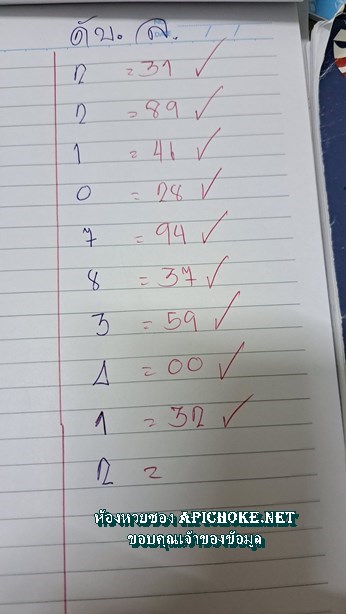 ดับ. ล.
2 = 31 ✓
2 = 89 ✓
1 = 41 ✓
0 = 28 ✓
7 = 94 ✓
8 = 37 ✓
3 = 59 ✓
= 00 ✓
1 = 32 ✓
2 =
ห้องหวยซอง APICHOKE.NET
ขอบคุณเจ้าของข้อมูล